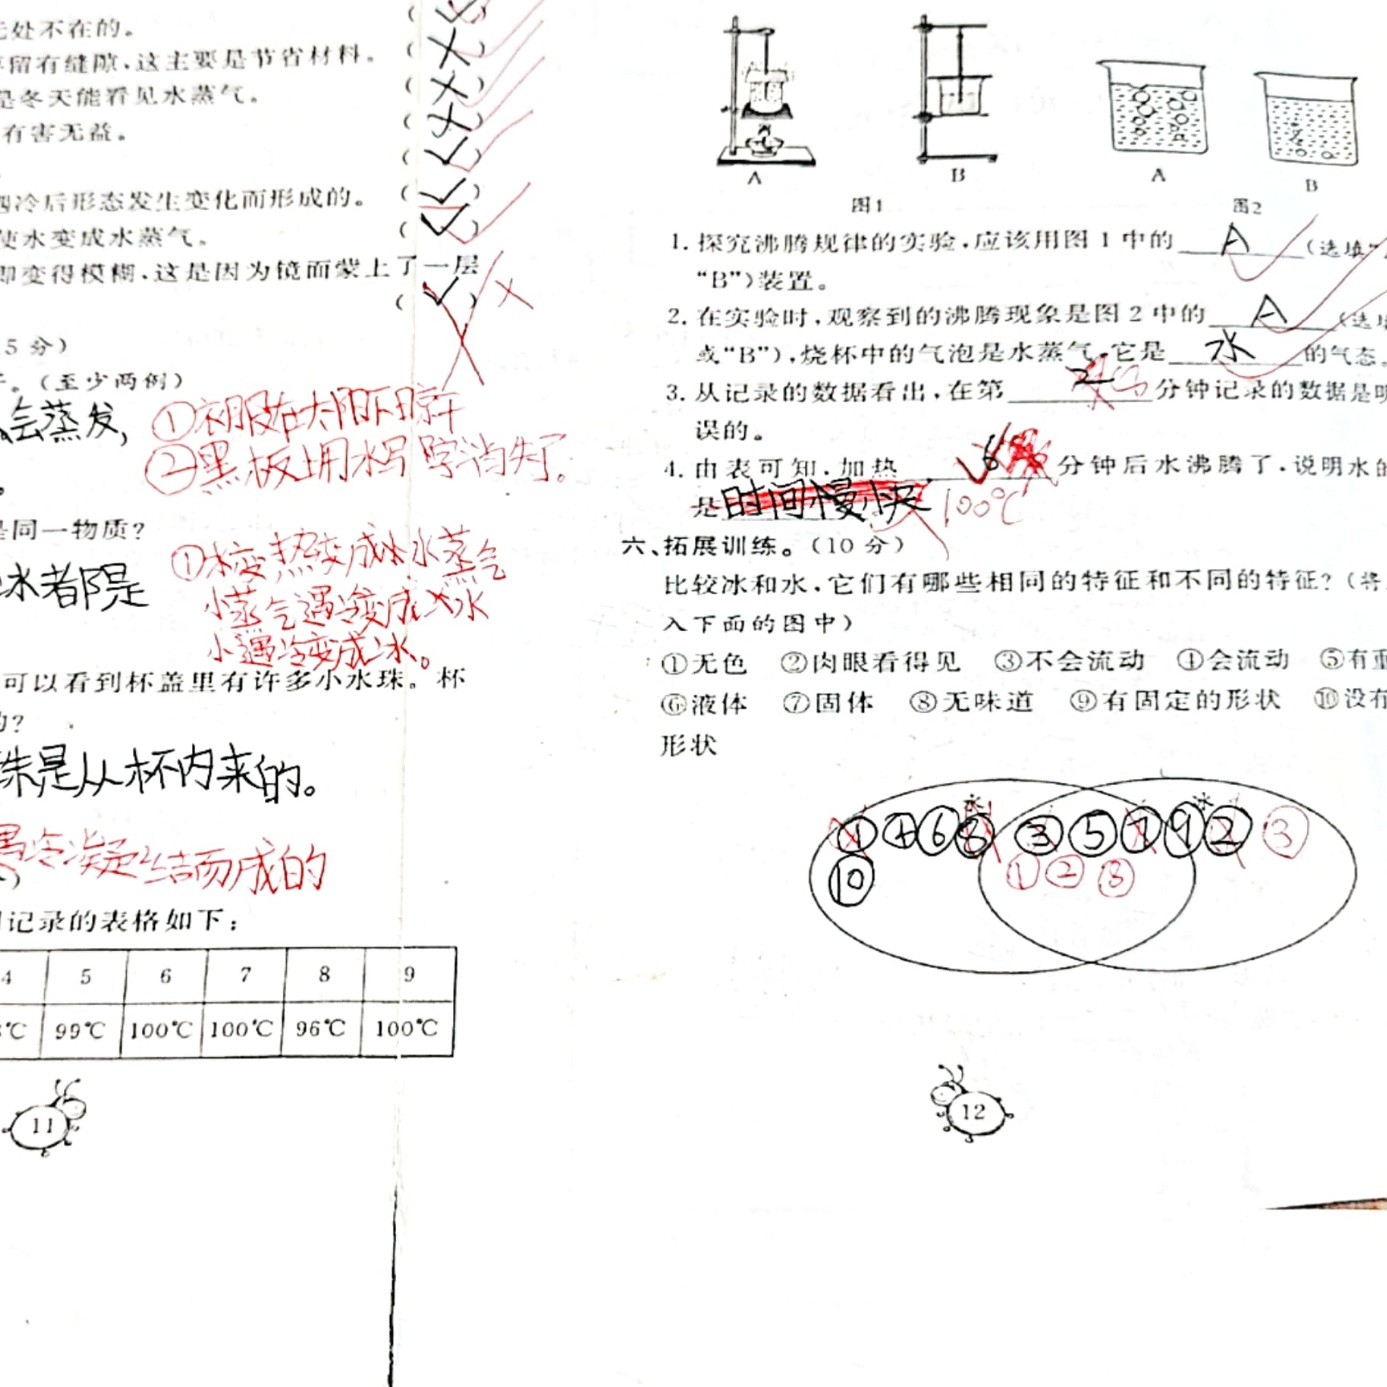 无处不在的。
留有缝隙，这主要是节省材料。
是冬天能看见水蒸气。
有害无益。
遇冷后形态发生变化而形成的。
使水变成水蒸气。
即变得模糊，这是因为镜面蒙上了一层
5分）
。（至少两例）
会蒸发，
①衣服在太阳下晾干
②黑板上用水写字消失了。
是同一物质？
冰都是
①水变热变成水蒸气
水蒸气遇冷变成水
水遇冷变成冰。
可以看到杯盖里有许多小水珠。杯
的？
珠是从杯内来的。
遇冷凝结而成的
记录的表格如下：
4 5 6 7 8 9
℃ 99℃ 100℃ 100℃ 96℃ 100℃
11
A B A B
图1 图2
1. 探究沸腾规律的实验，应该用图1中的 A （选填“
“B”）装置。
2. 在实验时，观察到的沸腾现象是图2中的 A （选填
或“B”），烧杯中的气泡是水蒸气，它是 水 的气态。
3. 从记录的数据看出，在第 分钟记录的数据是明
误的。
4. 由表可知，加热 6 分钟后水沸腾了，说明水的
是 时间慢快 100℃
六、拓展训练。（10分）
比较冰和水，它们有哪些相同的特征和不同的特征？（将
入下面的图中）
①无色 ②肉眼看得见 ③不会流动 ④会流动 ⑤有重
⑥液体 ⑦固体 ⑧无味道 ⑨有固定的形状 ⑩没有
形状
水 冰
① ④ ⑥ ⑧ ③ ⑤ ⑦ ⑨ ② ③
⑩ ① ② ⑧
12